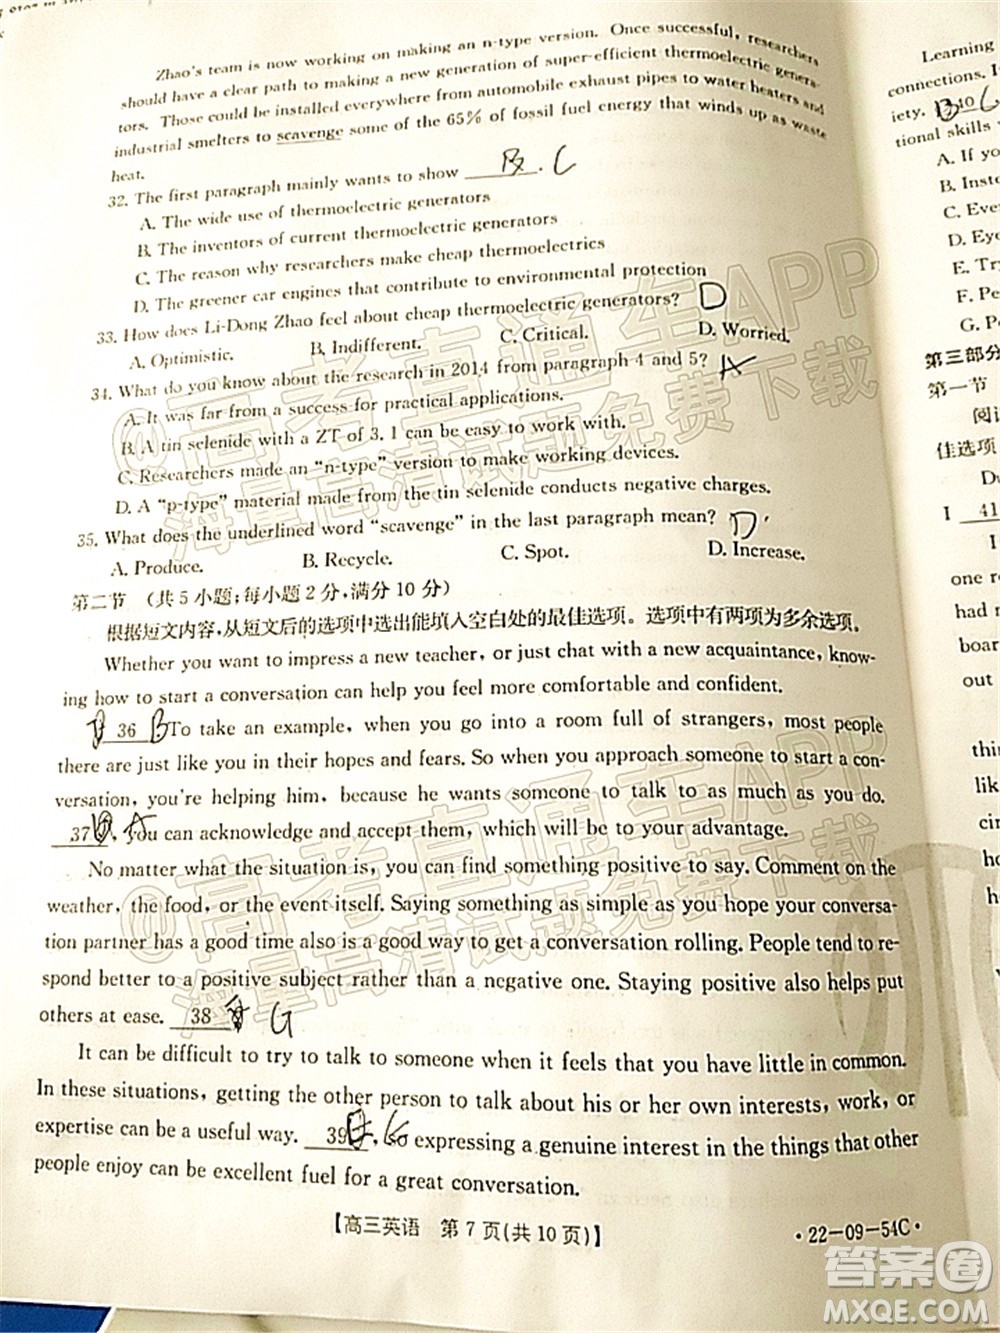 Zhao's team is now working on making an n-type version. Once successful, researchers
should have a clear path to making a new generation of super-efficient thermoelectric genera-
tors. Those could be installed everywhere from automobile exhaust pipes to water heaters and
industrial smelters to scavenge some of the 65% of fossil fuel energy that winds up as waste
heat.
32. The first paragraph mainly wants to show B. C
A. The wide use of thermoelectric generators
B. The inventors of current thermoelectric generators
C. The reason why researchers make cheap thermoelectrics
D. The greener car engines that contribute to environmental protection
33. How does Li-Dong Zhao feel about cheap thermoelectric generators? D
A. Optimistic. B. Indifferent. C. Critical. D. Worried.
34. What do you know about the research in 2014 from paragraph 4 and 5? A
A. It was far from a success for practical applications.
B. A tin selenide with a ZT of 3.1 can be easy to work with.
C. Researchers made an "n-type" version to make working devices.
D. A "p-type" material made from the tin selenide conducts negative charges.
35. What does the underlined word "scavenge" in the last paragraph mean? D
A. Produce. B. Recycle. C. Spot. D. Increase.
第二节 (共5小题;每小题2分,满分10分)
根据短文内容,从短文后的选项中选出能填入空白处的最佳选项。选项中有两项为多余选项。
Whether you want to impress a new teacher, or just chat with a new acquaintance, know-
ing how to start a conversation can help you feel more comfortable and confident.
36 B To take an example, when you go into a room full of strangers, most people
there are just like you in their hopes and fears. So when you approach someone to start a con-
versation, you're helping him, because he wants someone to talk to as much as you do.
37 A, you can acknowledge and accept them, which will be to your advantage.
No matter what the situation is, you can find something positive to say. Comment on the
weather, the food, or the event itself. Saying something as simple as you hope your conversa-
tion partner has a good time also is a good way to get a conversation rolling. People tend to re-
spond better to a positive subject rather than a negative one. Staying positive also helps put
others at ease. 38 G
It can be difficult to try to talk to someone when it feels that you have little in common.
In these situations, getting the other person to talk about his or her own interests, work, or
expertise can be a useful way. 39 , so expressing a genuine interest in the things that other
people enjoy can be excellent fuel for a great conversation.
【高三英语 第7页(共10页)】
·22-09-54C·
Learning
connections. I
iety. 40 B C
tional skills
A. If you
B. Inste
C. Eve
D. Eye
E. Try
F. Pe
G. Po
第三部分
第一节
阅
佳选项
Du
I 41
I
one r
had r
boar
out
thin
lik
cir
ho
h
@高考直通车APP
海量高清试题免费下载
@高考直通车APP
海量高清试题免费下载
答案圈
MXQE.COM